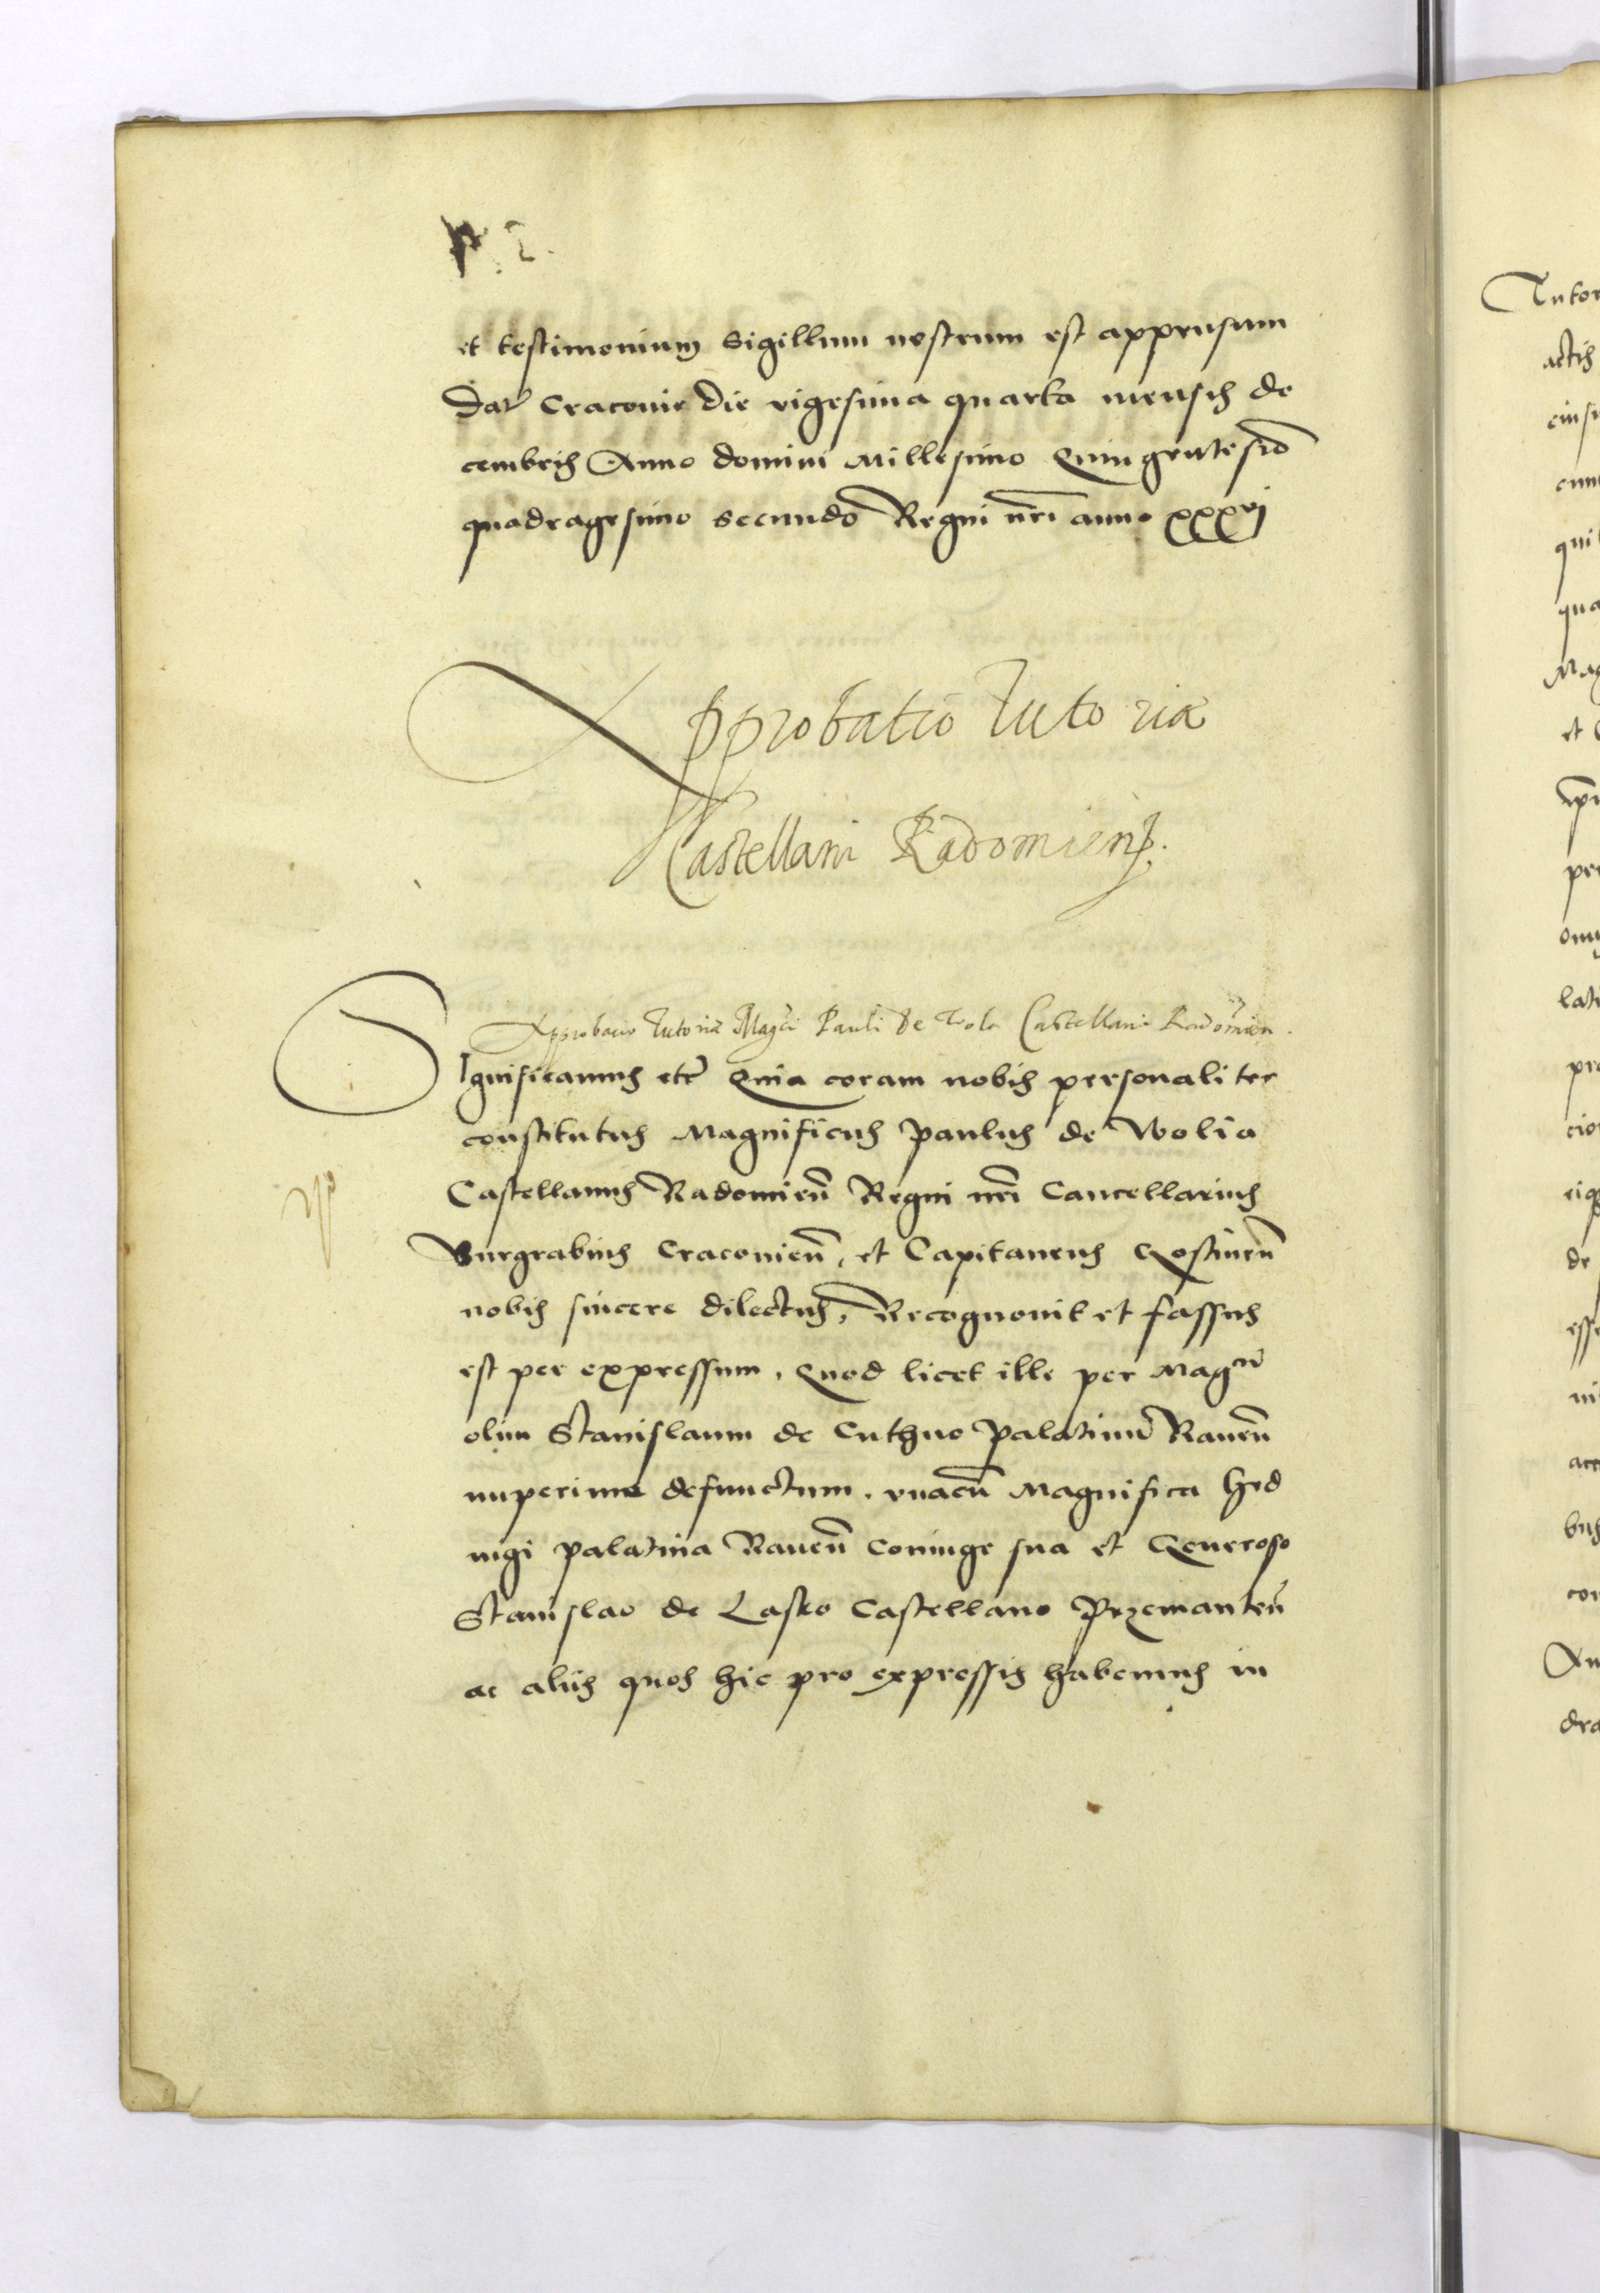 et testimonium Sigillum nostrum est appensum
Dat Craconie Die vigesima quarta mensis de
cembris Anno domini Millesimo Quingentesimo
quadragesimo secundo Regni nri anno xxxvi
Approbatio Tutoriae
Castellani Radomiens.
Approbacio Tutoriae Magci Pauli de Wola Castellani Radomien.
Significamus etc Quia coram nobis personaliter
constitutus Magnificus Paulus de Wolia
Castellanus Radomien Regni nri Cancellarius
Burgrabius Cracovien, et Capitaneus Gostinen
nobis sincere dilectus, Recognovit et fassus
est per expressum, Quod licet ille per Magcu
olim Stanislaum de Cuthno Palatinu Raven
nuperime defunctum, vnacu Magnifica Hed
vigi palatina Raven Coniuge sua et Generoso
Stanislao de Lasko Castellano Przemanten
ac aliis quos hic pro expressis habemus in
Tutor
actis
eius
cum
qui
qua
Mag
et
per
omn
lati
pro
cio
de
esse
ni
acc
bus
con
An
dra